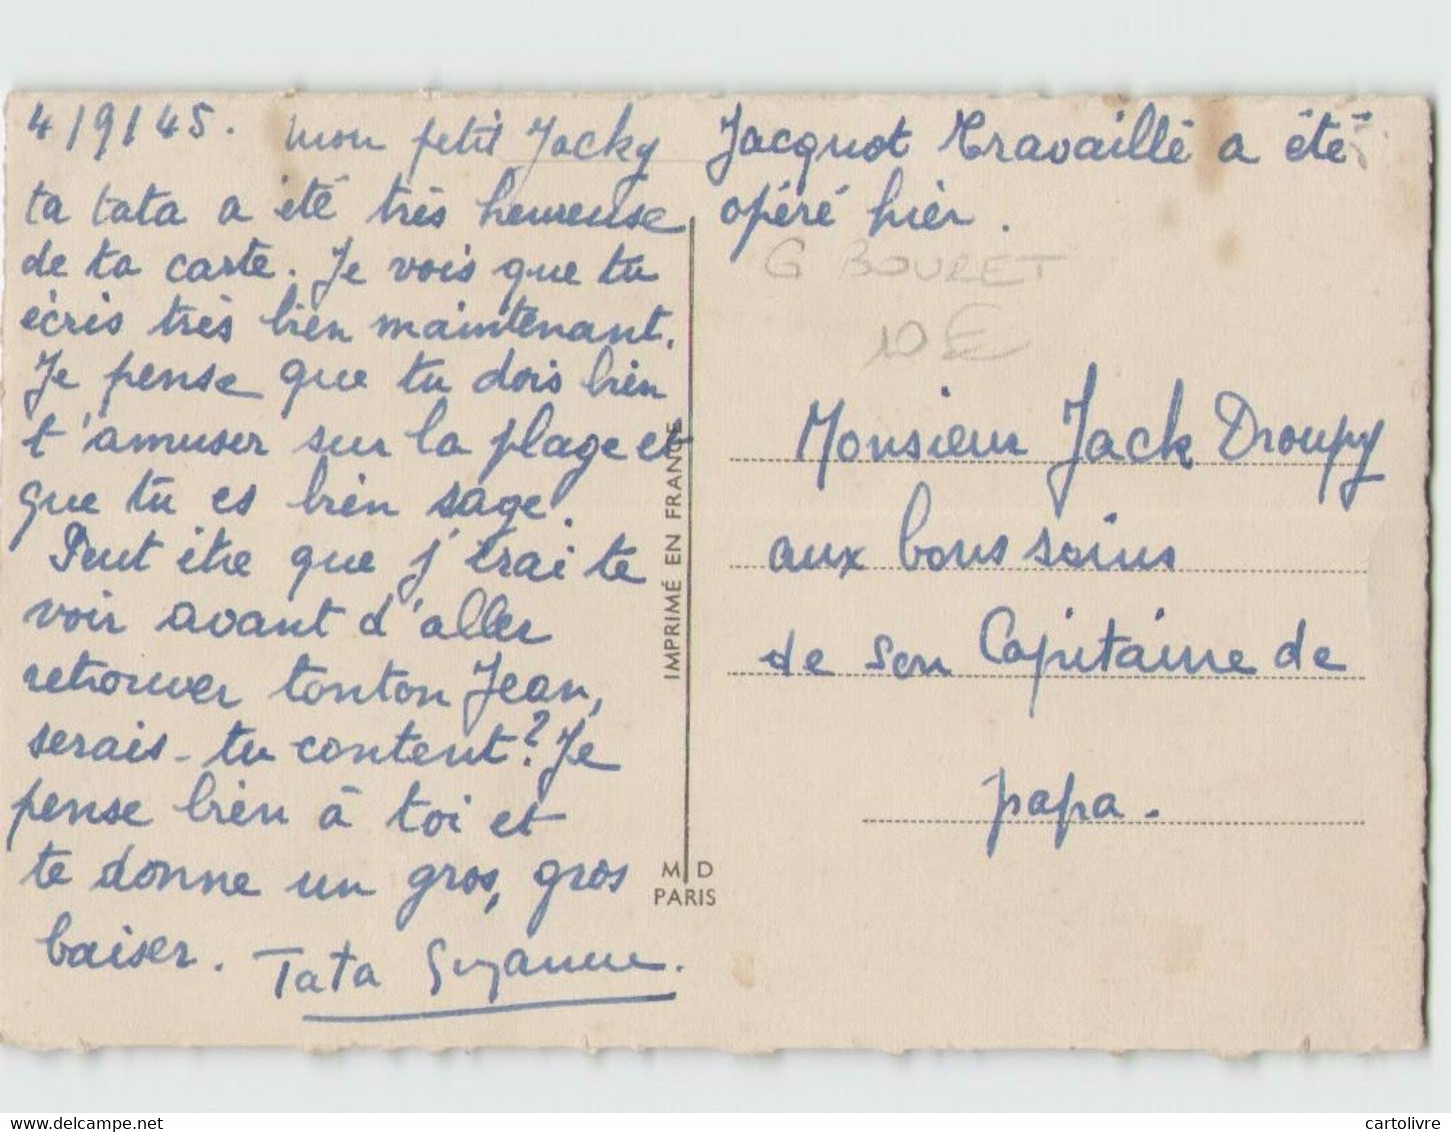 4/9/45. mon petit Jacky
ta tata a été très heureuse
de ta carte. Je vois que tu
écris très bien maintenant.
Je pense que tu dois bien
t'amuser sur la plage et
que tu es bien sage.
Peut être que j'irai te
voir avant d'aller
retrouver tonton Jean,
serais-tu content? Je
pense bien à toi et
te donne un gros, gros
baiser. Tata Suzanne.
IMPRIMÉ EN FRANCE
M D
PARIS
Jacquot Travaillé a été
opéré hier.
G BOURET
10 €
Monsieur Jack Droupy
aux bons soins
de son Capitaine de
papa.
delcampe.net
cartolivre